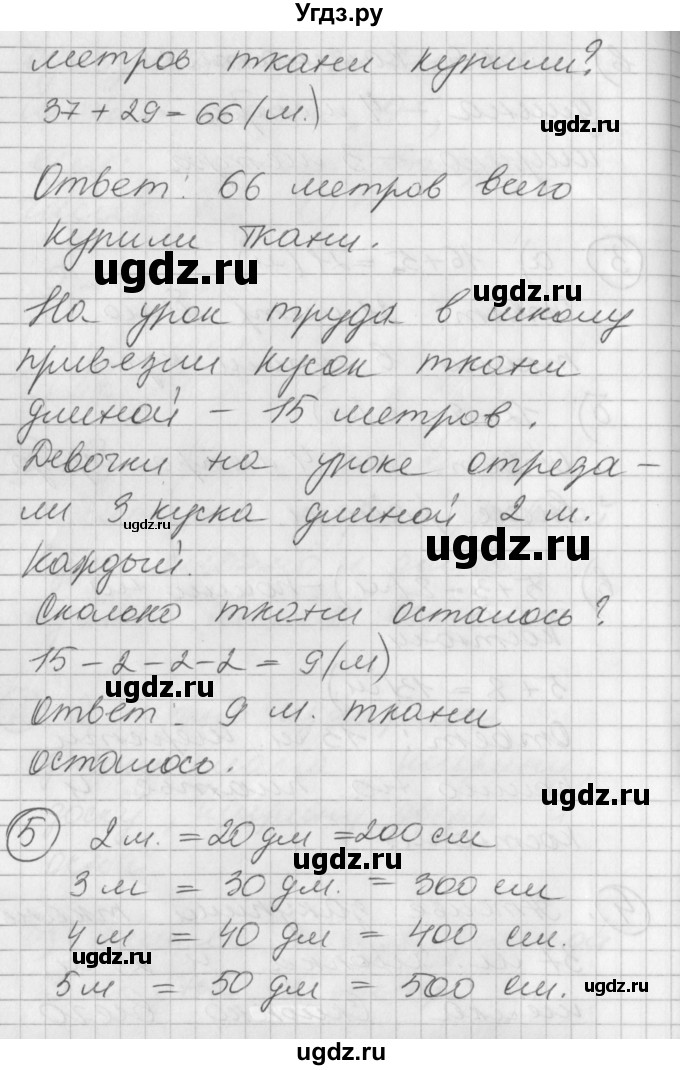 Угдз.ру
метров ткани купили?
37 + 29 = 66 (м.)
ugdz.ru
Ответ: 66 метров всего
купили ткани.
ugdz.ru
На урок труда в школу
ugdz.ru
привезли кусок ткани
длиной - 15 метров.
Девочки на уроке отреза-
ли 3 куска длиной 2 м.
ugdz.ru
ugdz.ru
Каждый.
Сколько ткани осталось?
15 - 2 - 2 - 2 = 9 (м)
ugdz.ru
Ответ: 9 м. ткани
осталось.
ugdz.ru
5 2 м. = 20 дм = 200 см
ugdz.ru
3 м = 30 дм. = 300 см
4 м = 40 дм = 400 см.
ugdz.ru
5 м = 50 дм = 500 см.
ugdz.ru
ugdz.ru